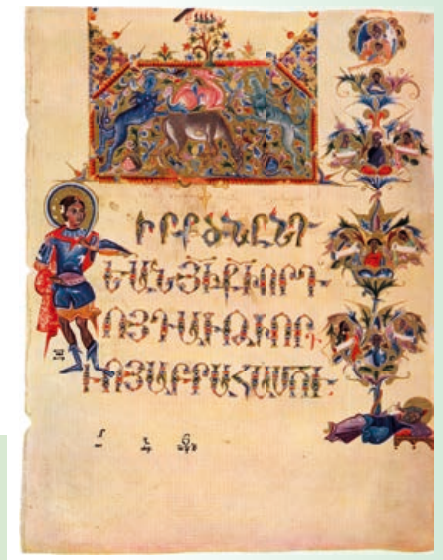 ԳԻՐՔ ԾՆԸՆԴ
ԵԱՆ ՅԻ ՔԻ ՈՐԴ
ՒՈՅ ԴԱՒԹԻ ՈՐԴ
ՒՈՅ ԱԲՐԱՀԱՄՈՒ։